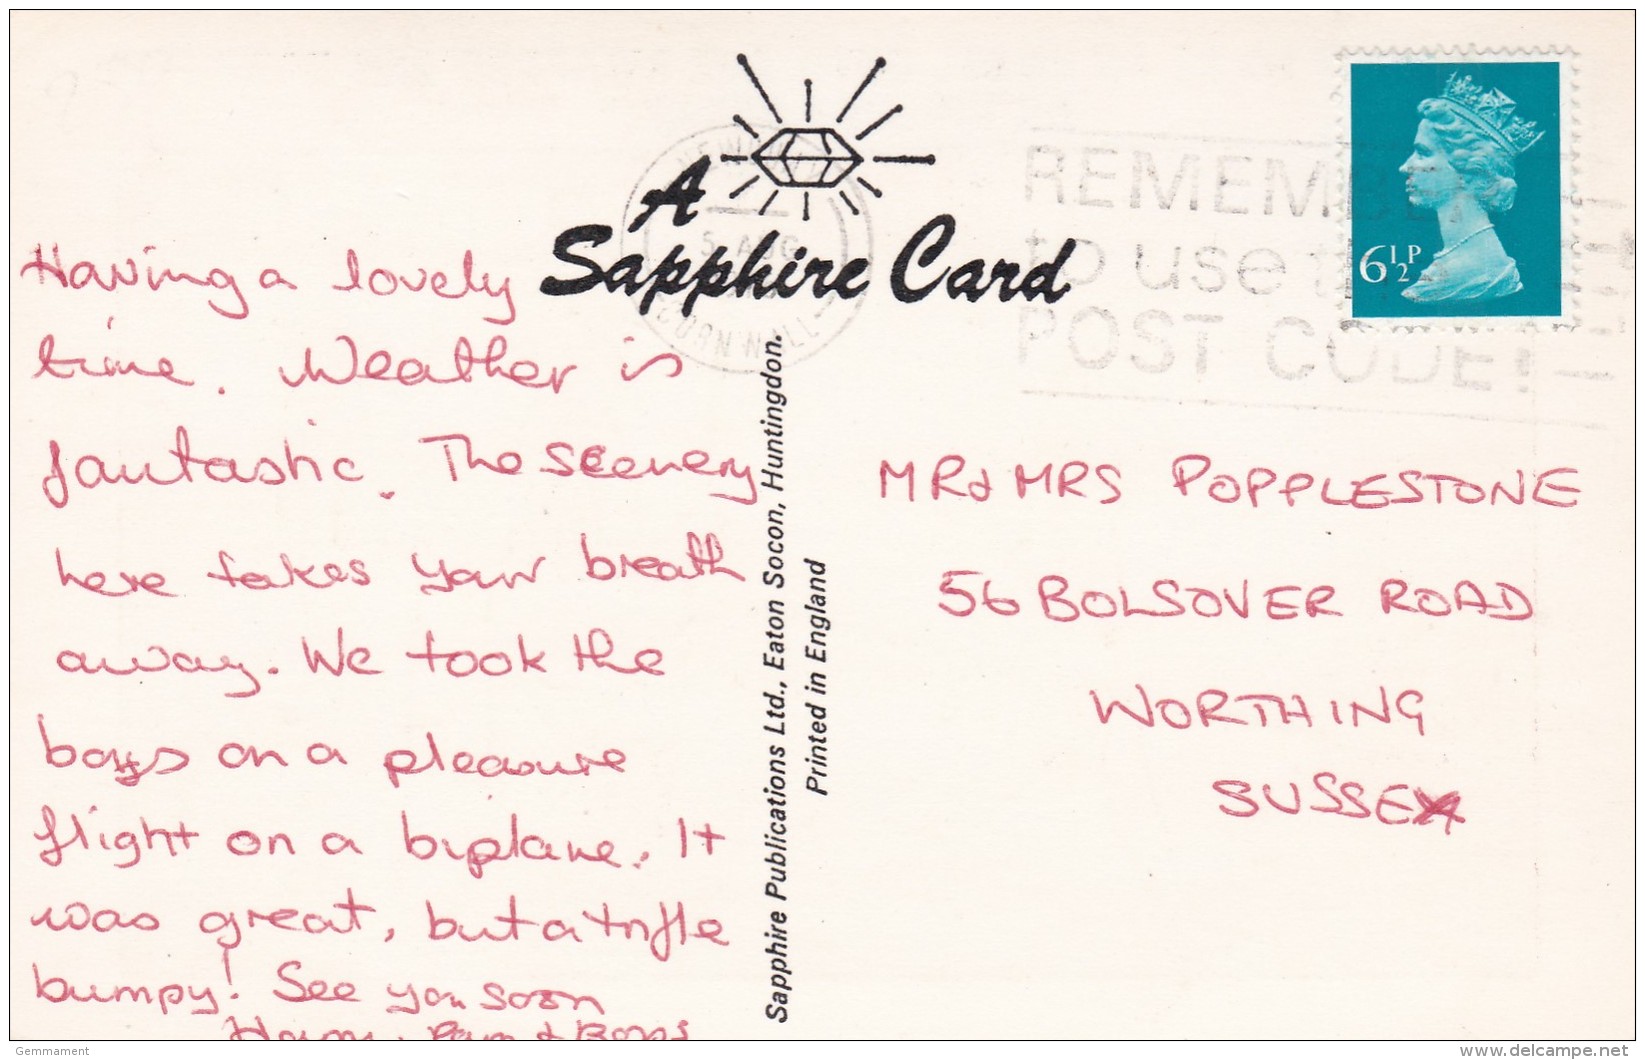 A
Sapphire Card
REMEMBER
to use the
POST CODE!
5 AUG
CORNWALL
6½P
Having a lovely
time. Weather is
fantastic. The scenery
here takes your breath
away. We took the
boys on a pleasure
flight on a biplane. It
was great, but a trifle
bumpy! See you soon
Pam & Boys
Sapphire Publications Ltd., Eaton Socon, Huntingdon.
Printed in England
MR & MRS POPPLESTONE
56 BOLSOVER ROAD
WORTHING
SUSSEX
Gemmament
delcampe.net